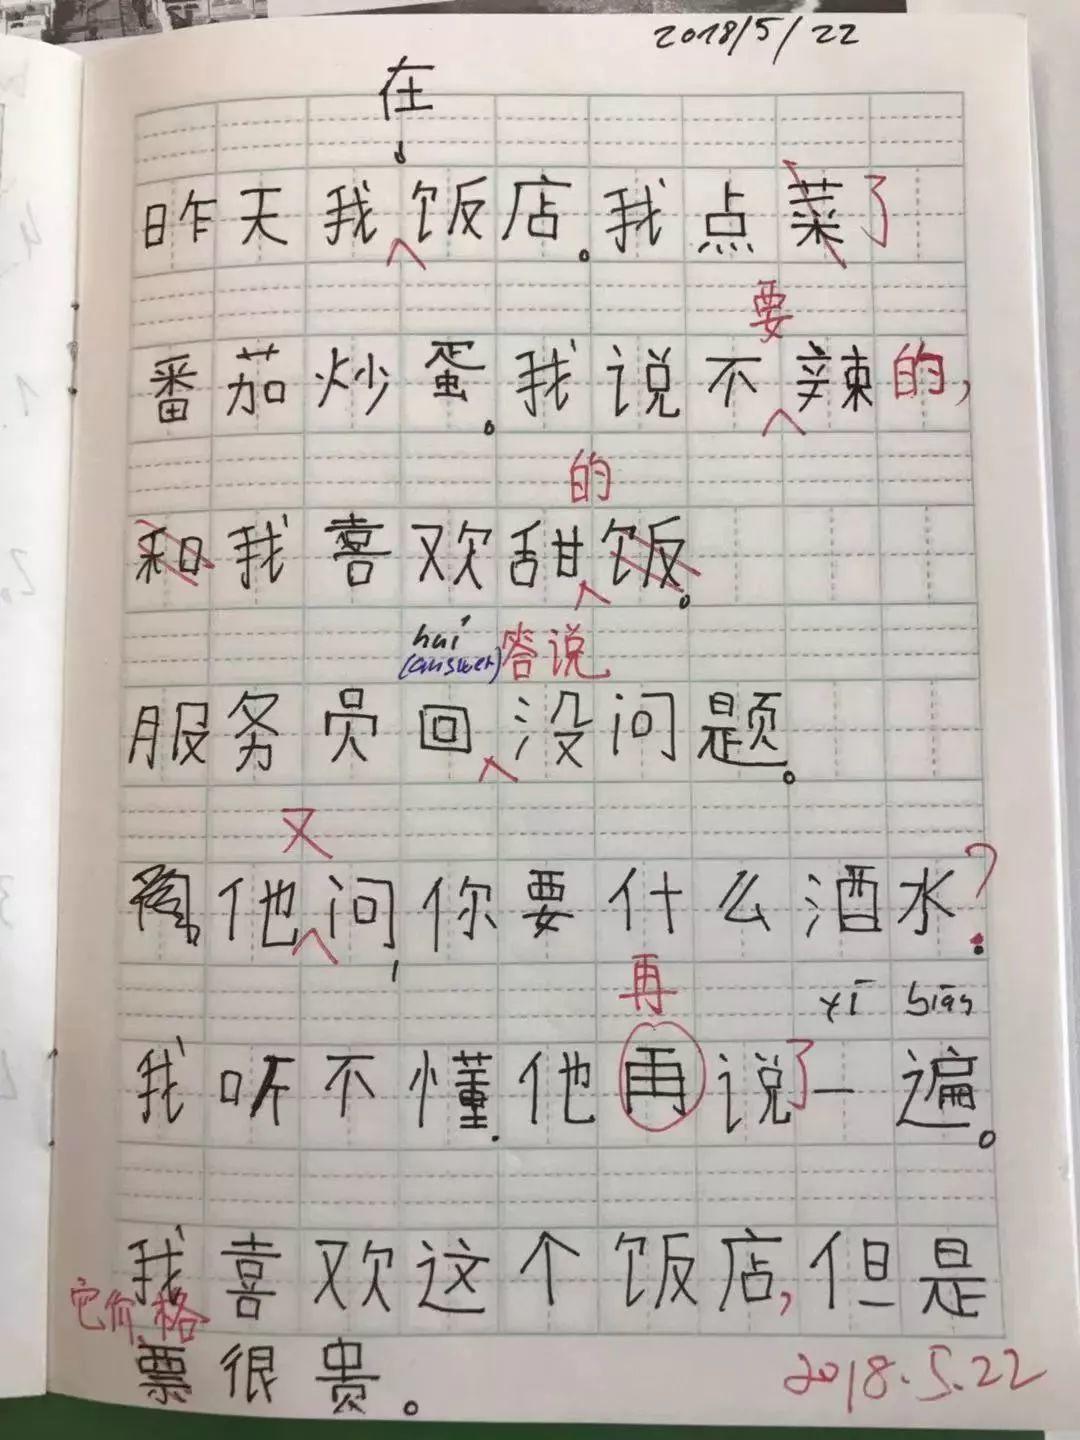 2018/5/22
在
昨天我饭店。我点菜了
要
番茄炒蛋。我说不辣的,
的
和我喜欢甜饭。
huí
(answer)答说
服务员回没问题。
又
他问,你要什么酒水?
再
yī biàn
我听不懂.他再说了一遍。
我喜欢这个饭店,但是
它价格
票很贵。
2018.5.22